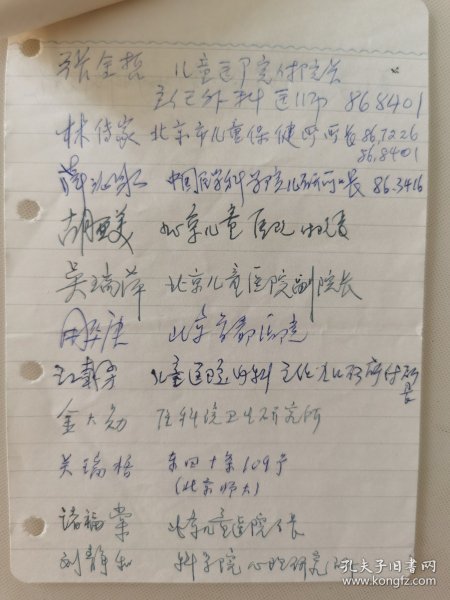 张金哲 儿童医院付院长
主任外科医师 868401
林传家 北京市儿童保健所所长 86.7226
86.8401
薛沁冰 中国医学科学院儿研所所长 86.3416
胡亚美 北京儿童医院
吴瑞萍 北京儿童医院副院长
北京首都医院
儿童医院内科主任 儿研所付所长
金大勋 医科院卫生研究所
关瑞梧 东四十条109号
(北京师大)
诸福棠 北京儿童医院院长
刘静和 科学院心理研究所
孔夫子旧书网
www.kongfz.com